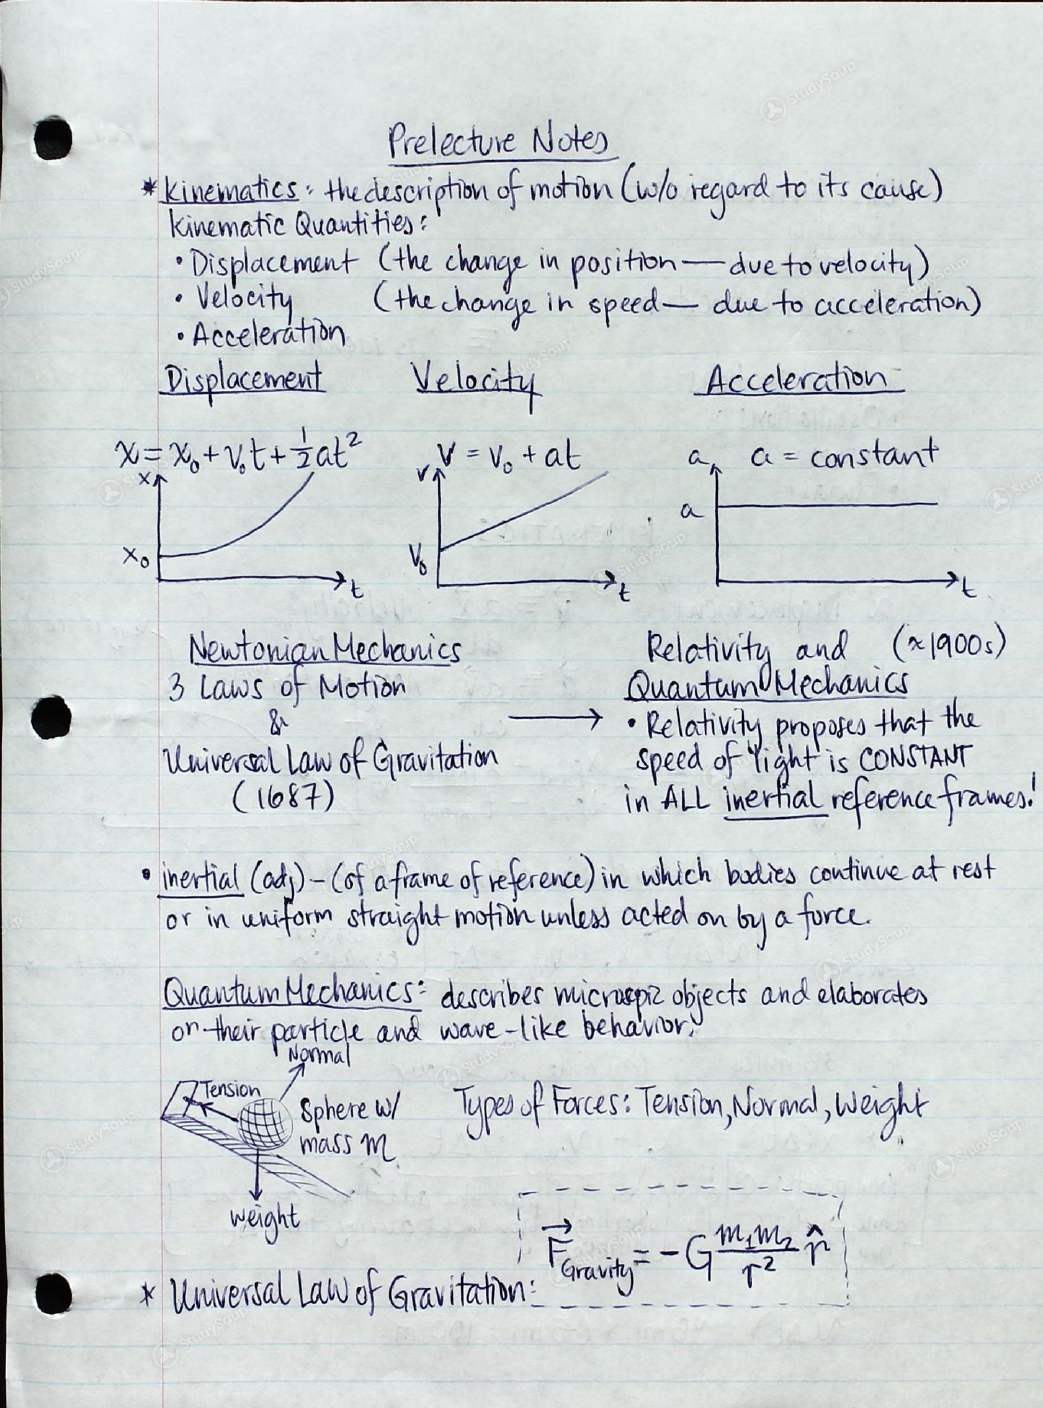 Prelecture Notes
* Kinematics: the description of motion (w/o regard to its cause)
Kinematic Quantities:
• Displacement (the change in position — due to velocity)
• Velocity (the change in speed — due to acceleration)
• Acceleration
Displacement Velocity Acceleration
x = x₀ + v₀t + ½at² v = v₀ + at a = constant
x x₀ t
v v₀ t
a a t
Newtonian Mechanics
3 Laws of Motion
&
Universal Law of Gravitation
(1687)
Relativity and (≈1900s)
Quantum Mechanics
• Relativity proposes that the
speed of light is CONSTANT
in ALL inertial reference frames!
• inertial (adj) – (of a frame of reference) in which bodies continue at rest
or in uniform straight motion unless acted on by a force.
Quantum Mechanics: describes objects and elaborates
on their particle and wave-like behavior.
Normal
Tension
Sphere w/
mass m
weight
Types of Forces: Tension, Normal, Weight
* Universal Law of Gravitation: F⃗Gravity = -G m₁m₂/r² r̂
StudySoup